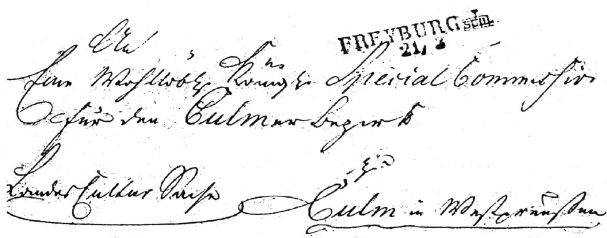 FREYBURG i. Schl.
21/2
An
Eine Wohllöbl. Königl. Special Commission
für den Culmer Bezirk
zu
Landes Cultur Sache
Culm in Westpreußen